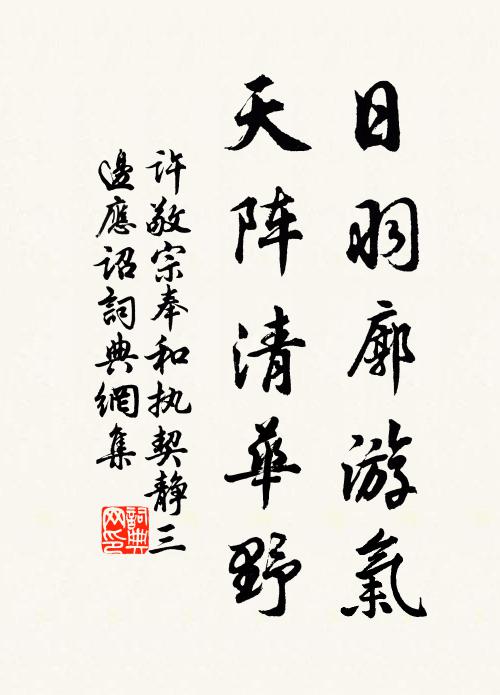 日羽廓游氣
天阵清華野
許敬宗奉和执契静三
邊應詔詞典網集
詞典网印